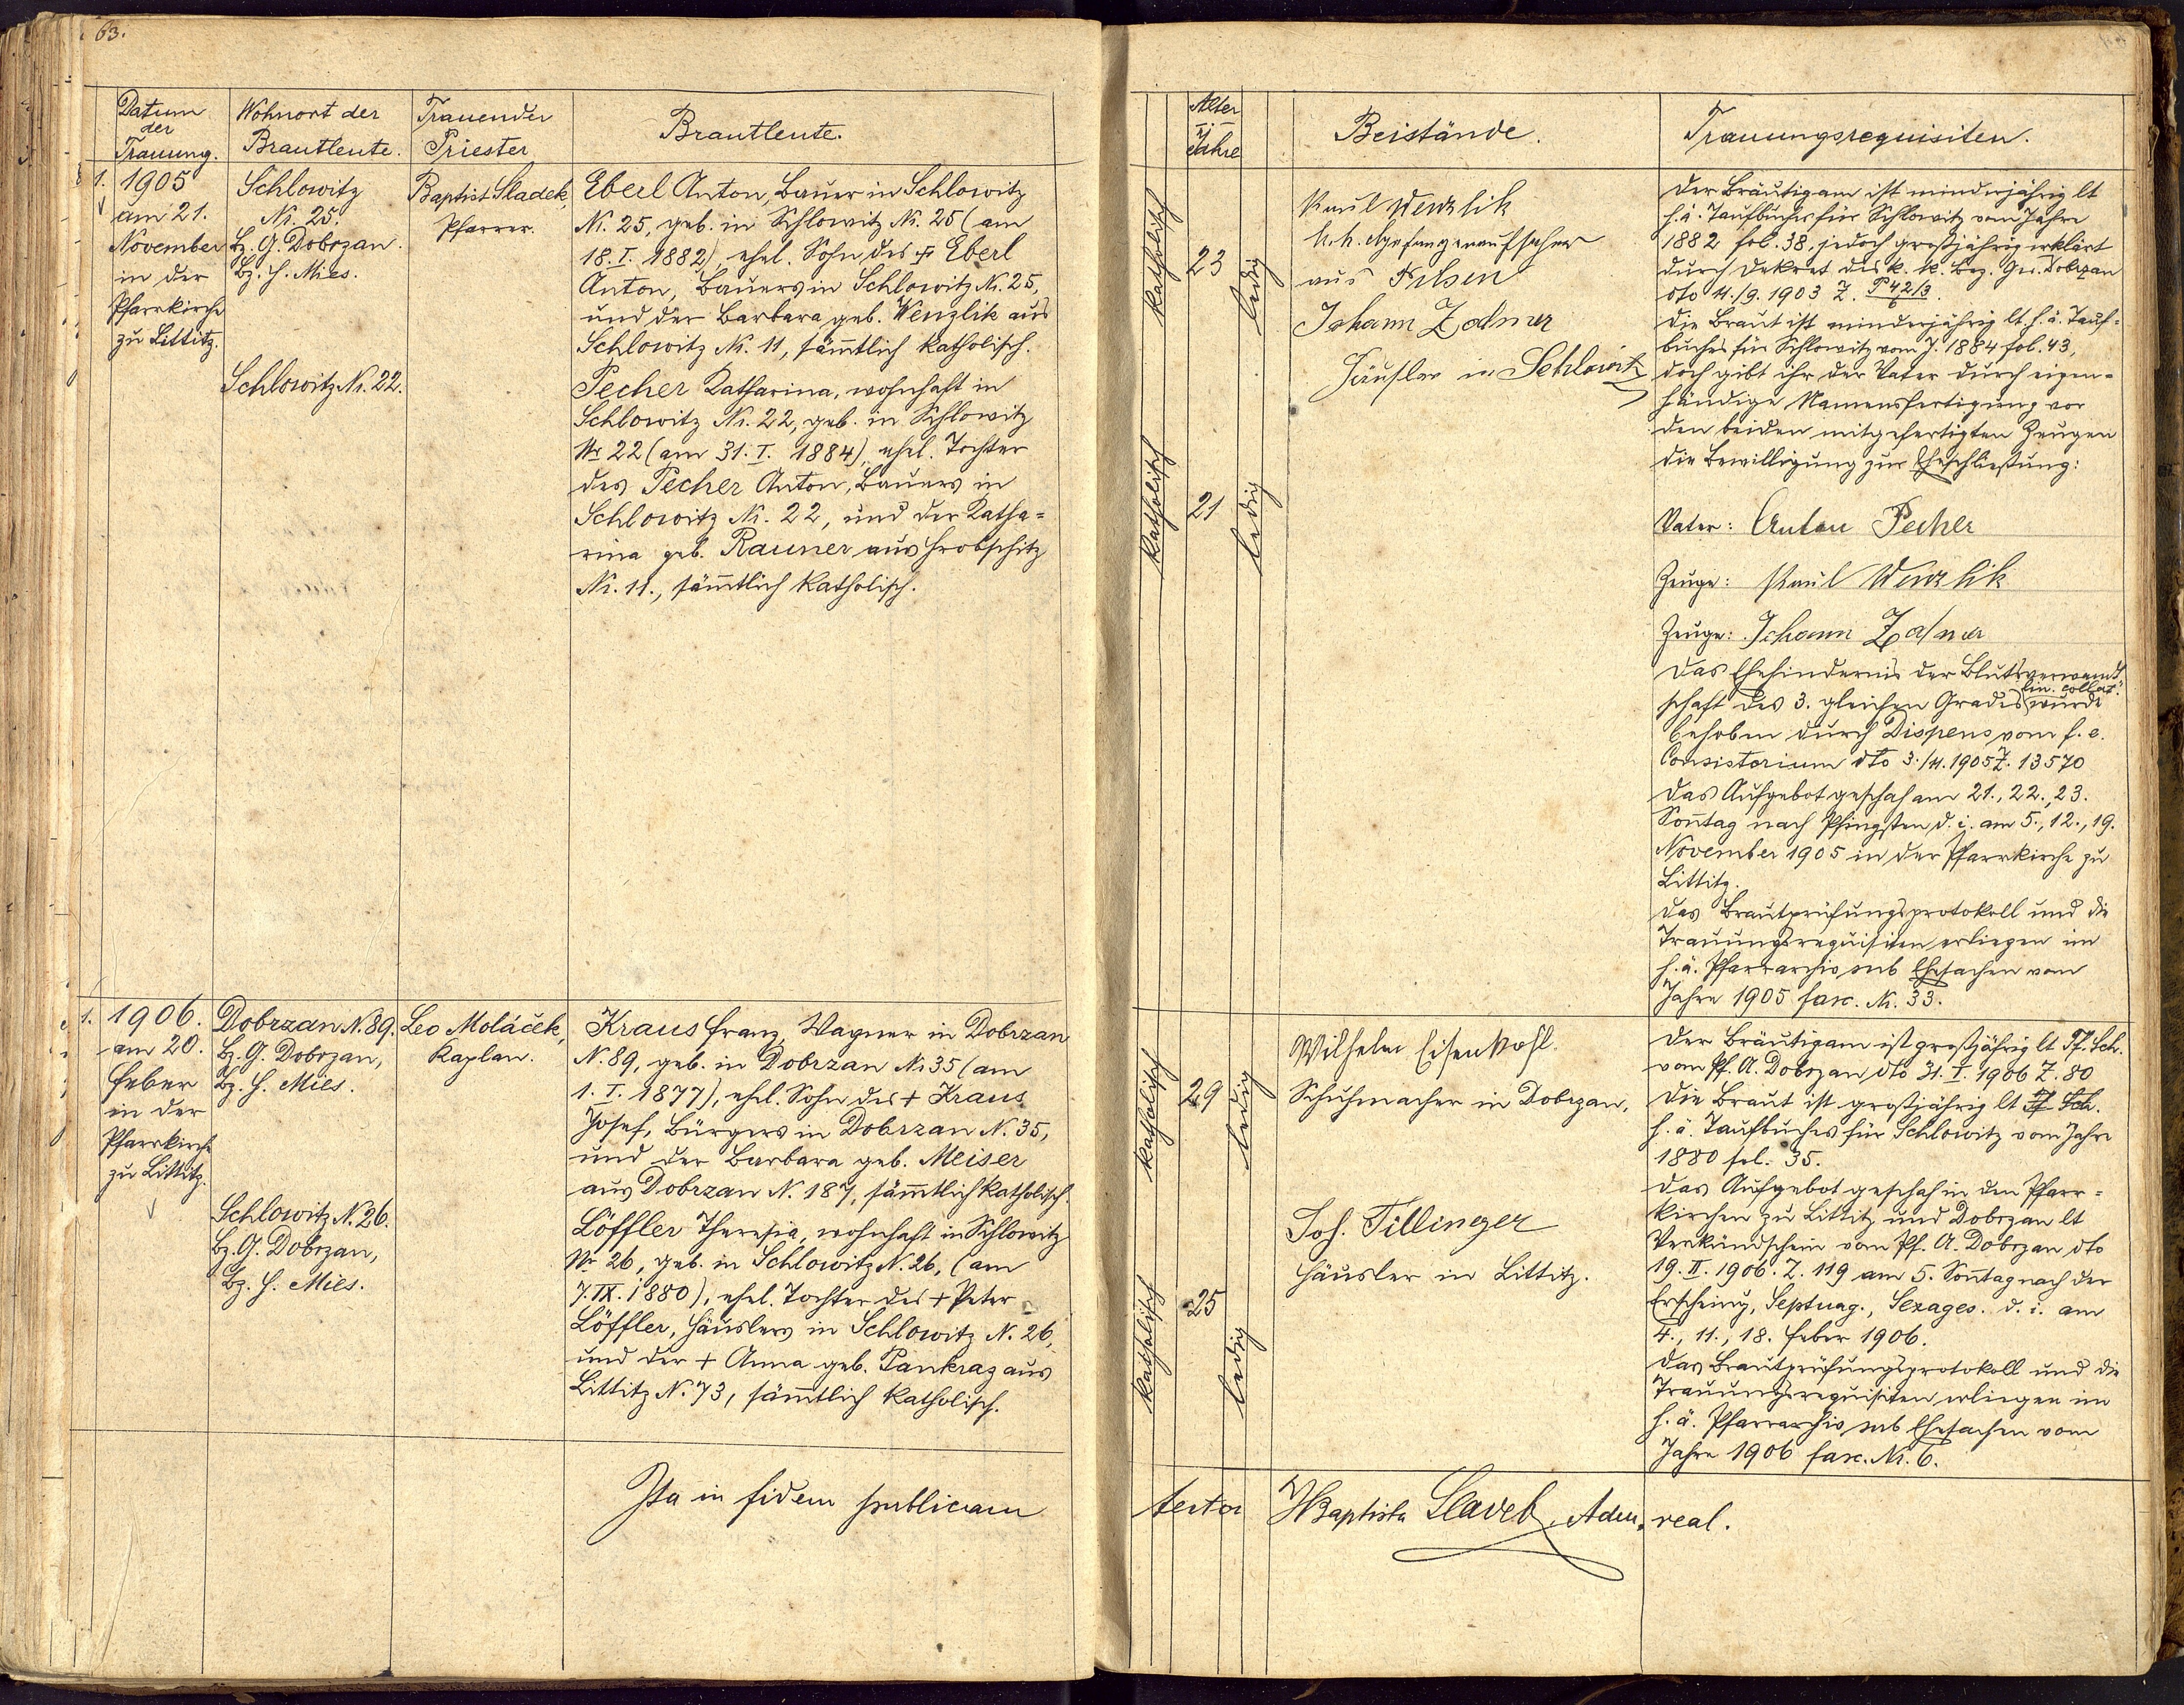 63.
Datum
der
Trauung.
Wohnort der
Brautleute.
Trauender
Priester
Brautleute.
1. 1905
am 21.
November
in der
Pfarrkirche
zu Littitz.
Schlowitz
Nr. 25.
Bz. G. Dobrzan.
Bz. H. Mies.
Schlowitz Nr. 22.
Baptist Sladek,
Pfarrer.
Eberl Anton, Bauer in Schlowitz
Nr. 25, geb. in Schlowitz Nr. 25 (am
18. I. 1882), ehel. Sohn des + Eberl
Anton, Bauers in Schlowitz Nr. 25,
und der Barbara geb. Wenzlik aus
Schlowitz Nr. 11, sämtlich katholisch.
Pecher Katharina, wohnhaft in
Schlowitz Nr. 22, geb. in Schlowitz
Nr. 22 (am 31. I. 1884), ehel. Tochter
des Pecher Anton, Bauers in
Schlowitz Nr. 22, und der Katha=
rina geb. Rauner aus Hrobschitz
Nr. 11., sämtlich katholisch.
1. 1906.
am 20.
Feber
in der
Pfarrkirche
zu Littitz.
Dobrzan N. 89.
Bz. G. Dobrzan,
Bz. H. Mies.
Schlowitz N. 26.
Bz. G. Dobrzan,
Bz. H. Mies.
Leo Moláček,
Kaplan.
Kraus Franz, Wagner in Dobrzan
N. 89, geb. in Dobrzan Nr 35 (am
1. I. 1877), ehel. Sohn des + Kraus
Josef, Bürgers in Dobrzan N. 35,
und der Barbara geb. Meiser
aus Dobrzan N. 187, sämtlich katholisch.
Löffler Theresia, wohnhaft in Schlowitz
Nr 26, geb. in Schlowitz N. 26, (am
7. IX. 1880), ehel. Tochter des + Peter
Löffler, Häuslers in Schlowitz N. 26,
und der + Anna geb. Pankraz aus
Littitz N. 73, sämtlich katholisch.
Ita in fidem publicam
Alter
Jahre
Beistände.
Trauungsrequisiten.
katholisch
23
ledig
katholisch
21
ledig
Paul Wenzlik
k. k. Gefangenaufseher
aus Pilsen
Johann Zadner
Häusler in Schlowitz
Der Bräutigam ist minderjährig lt
h. ä. Taufbuches für Schlowitz vom Jahre
1882 fol. 38, jedoch großjährig erklärt
durch Dekret des k. k. Bez. Ger. Dobrzan
dto 11./9. 1903 Z. P 42/3
6.
Die Braut ist minderjährig lt. h. ä. Tauf=
buches für Schlowitz vom J. 1884 fol. 43,
doch gibt ihr der Vater durch eigen=
händige Namensfertigung vor
den beiden mitgefertigten Zeugen
die Bewilligung zur Eheschließung:
Vater: Anton Pecher
Zeuge: Paul Wenzlik
Zeuge: Johann Zadner
Das Ehehindernis der Blutsverwandt=
lin. collat.
schaft des 3. gleichen Grades wurde
behoben durch Dispens vom f. e.
Consistorium dto 3./11. 1905 Z. 13570
Das Aufgebot geschah am 21., 22., 23.
Sonntag nach Pfingsten d. i. am 5., 12., 19.
November 1905 in der Pfarrkirche zu
Littitz.
Das Brautprüfungsprotokoll und die
Trauungsrequisiten erliegen im
h. ä. Pfarrarchiv sub Ehesachen vom
Jahre 1905 fasc. Nr. 33.
katholisch
29
ledig
katholisch
25
ledig
Wilhelm Eisenkohl.
Schuhmacher in Dobrzan.
Joh. Tillinger
Häusler in Littitz.
Der Bräutigam ist großjährig lt Tf. Sch.
vom Pf. A. Dobrzan dto 31. I. 1906 Z. 80
Die Braut ist großjährig lt Tf. Sch.
h. ä. Taufbuches für Schlowitz vom Jahre
1880 fol. 35.
Das Aufgebot geschah in den Pfarr=
kirchen zu Littitz und Dobrzan lt
Verkündschein vom Pf. A. Dobrzan dto
19. II. 1906. Z. 119 am 5. Sonntag nach der
Erscheinung, Septuag., Sexages. d. i. am
4., 11., 18. Feber 1906.
Das Brautprüfungsprotokoll und die
Trauungsrequisiten erliegen im
h. ä. Pfarrarchiv sub Ehesachen vom
Jahre 1906 fasc. Nr. 6.
testor Baptista Sladek, Adm. real.